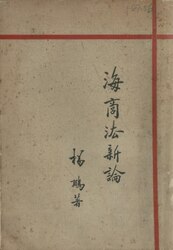 海商法新論
楊鵬著